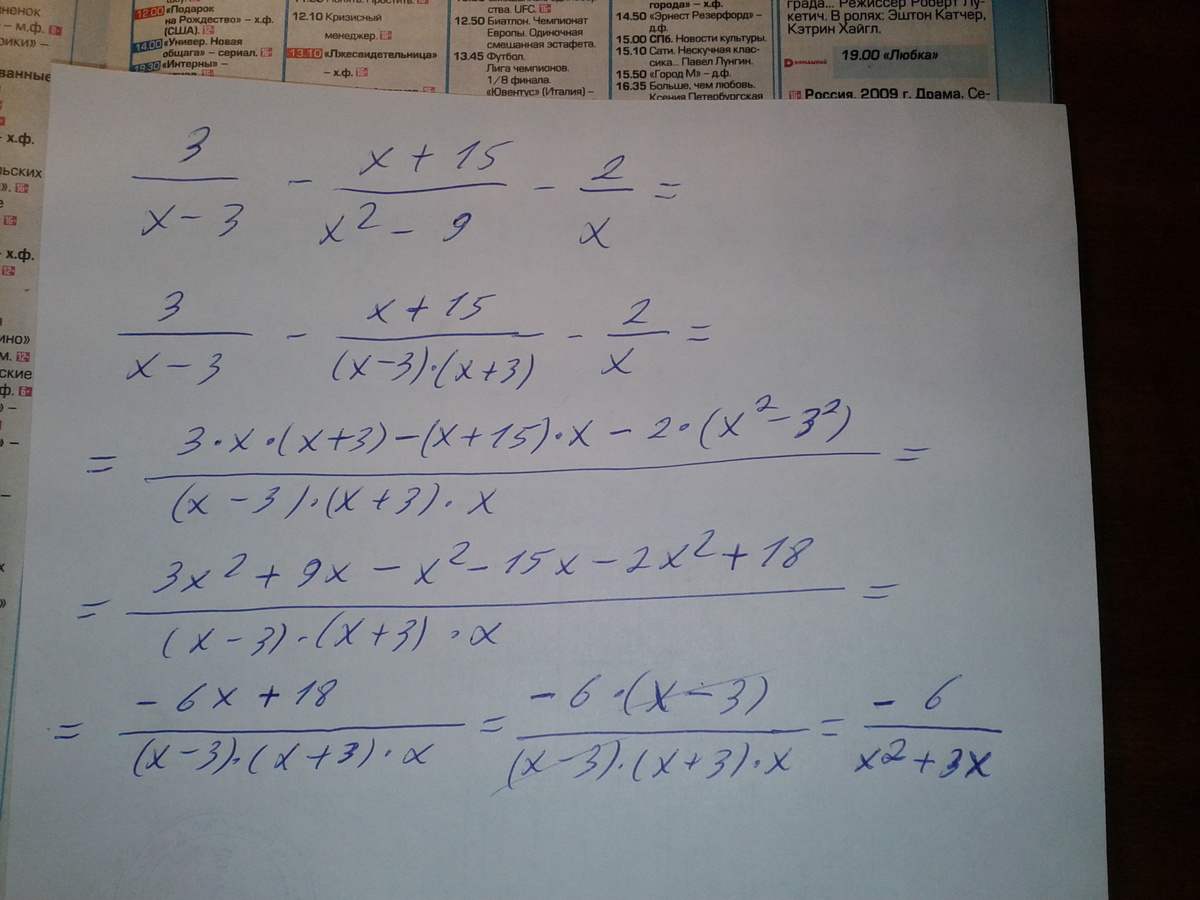 12.00 «Подарок
на Рождество» – х.ф.
(США). 12+
14.00 «Универ. Новая
общага» – сериал. 16+
19.30 «Интерны» –
12.10 Кризисный
менеджер. 16+
13.10 «Лжесвидетельница»
– х.ф. 16+
12.50 Биатлон. Чемпионат
Европы. Одиночная
смешанная эстафета.
13.45 Футбол.
Лига чемпионов.
1/8 финала.
«Ювентус» (Италия) –
города» – х.ф.
14.50 «Эрнест Резерфорд» –
д.ф.
15.00 СПб. Новости культуры.
15.10 Сати. Нескучная клас-
сика... Павел Лунгин.
15.50 «Город М» – д.ф.
16.35 Больше, чем любовь.
Ксения Петербургская
града... Режиссер Роберт Лу-
кетич. В ролях: Эштон Катчер,
Кэтрин Хайгл.
Домашний 19.00 «Любка»
16+ Россия, 2009 г. Драма. Се-
3 / (x - 3) - (x + 15) / (x² - 9) - 2 / x =
3 / (x - 3) - (x + 15) / ((x-3)·(x+3)) - 2 / x =
= (3·x·(x+3) - (x+15)·x - 2·(x² - 3²)) / ((x - 3)·(x + 3)·x) =
= (3x² + 9x - x² - 15x - 2x² + 18) / ((x - 3)·(x + 3)·x) =
= (-6x + 18) / ((x-3)·(x+3)·x) = (-6·(x - 3)) / ((x-3)·(x+3)·x) = -6 / (x² + 3x)